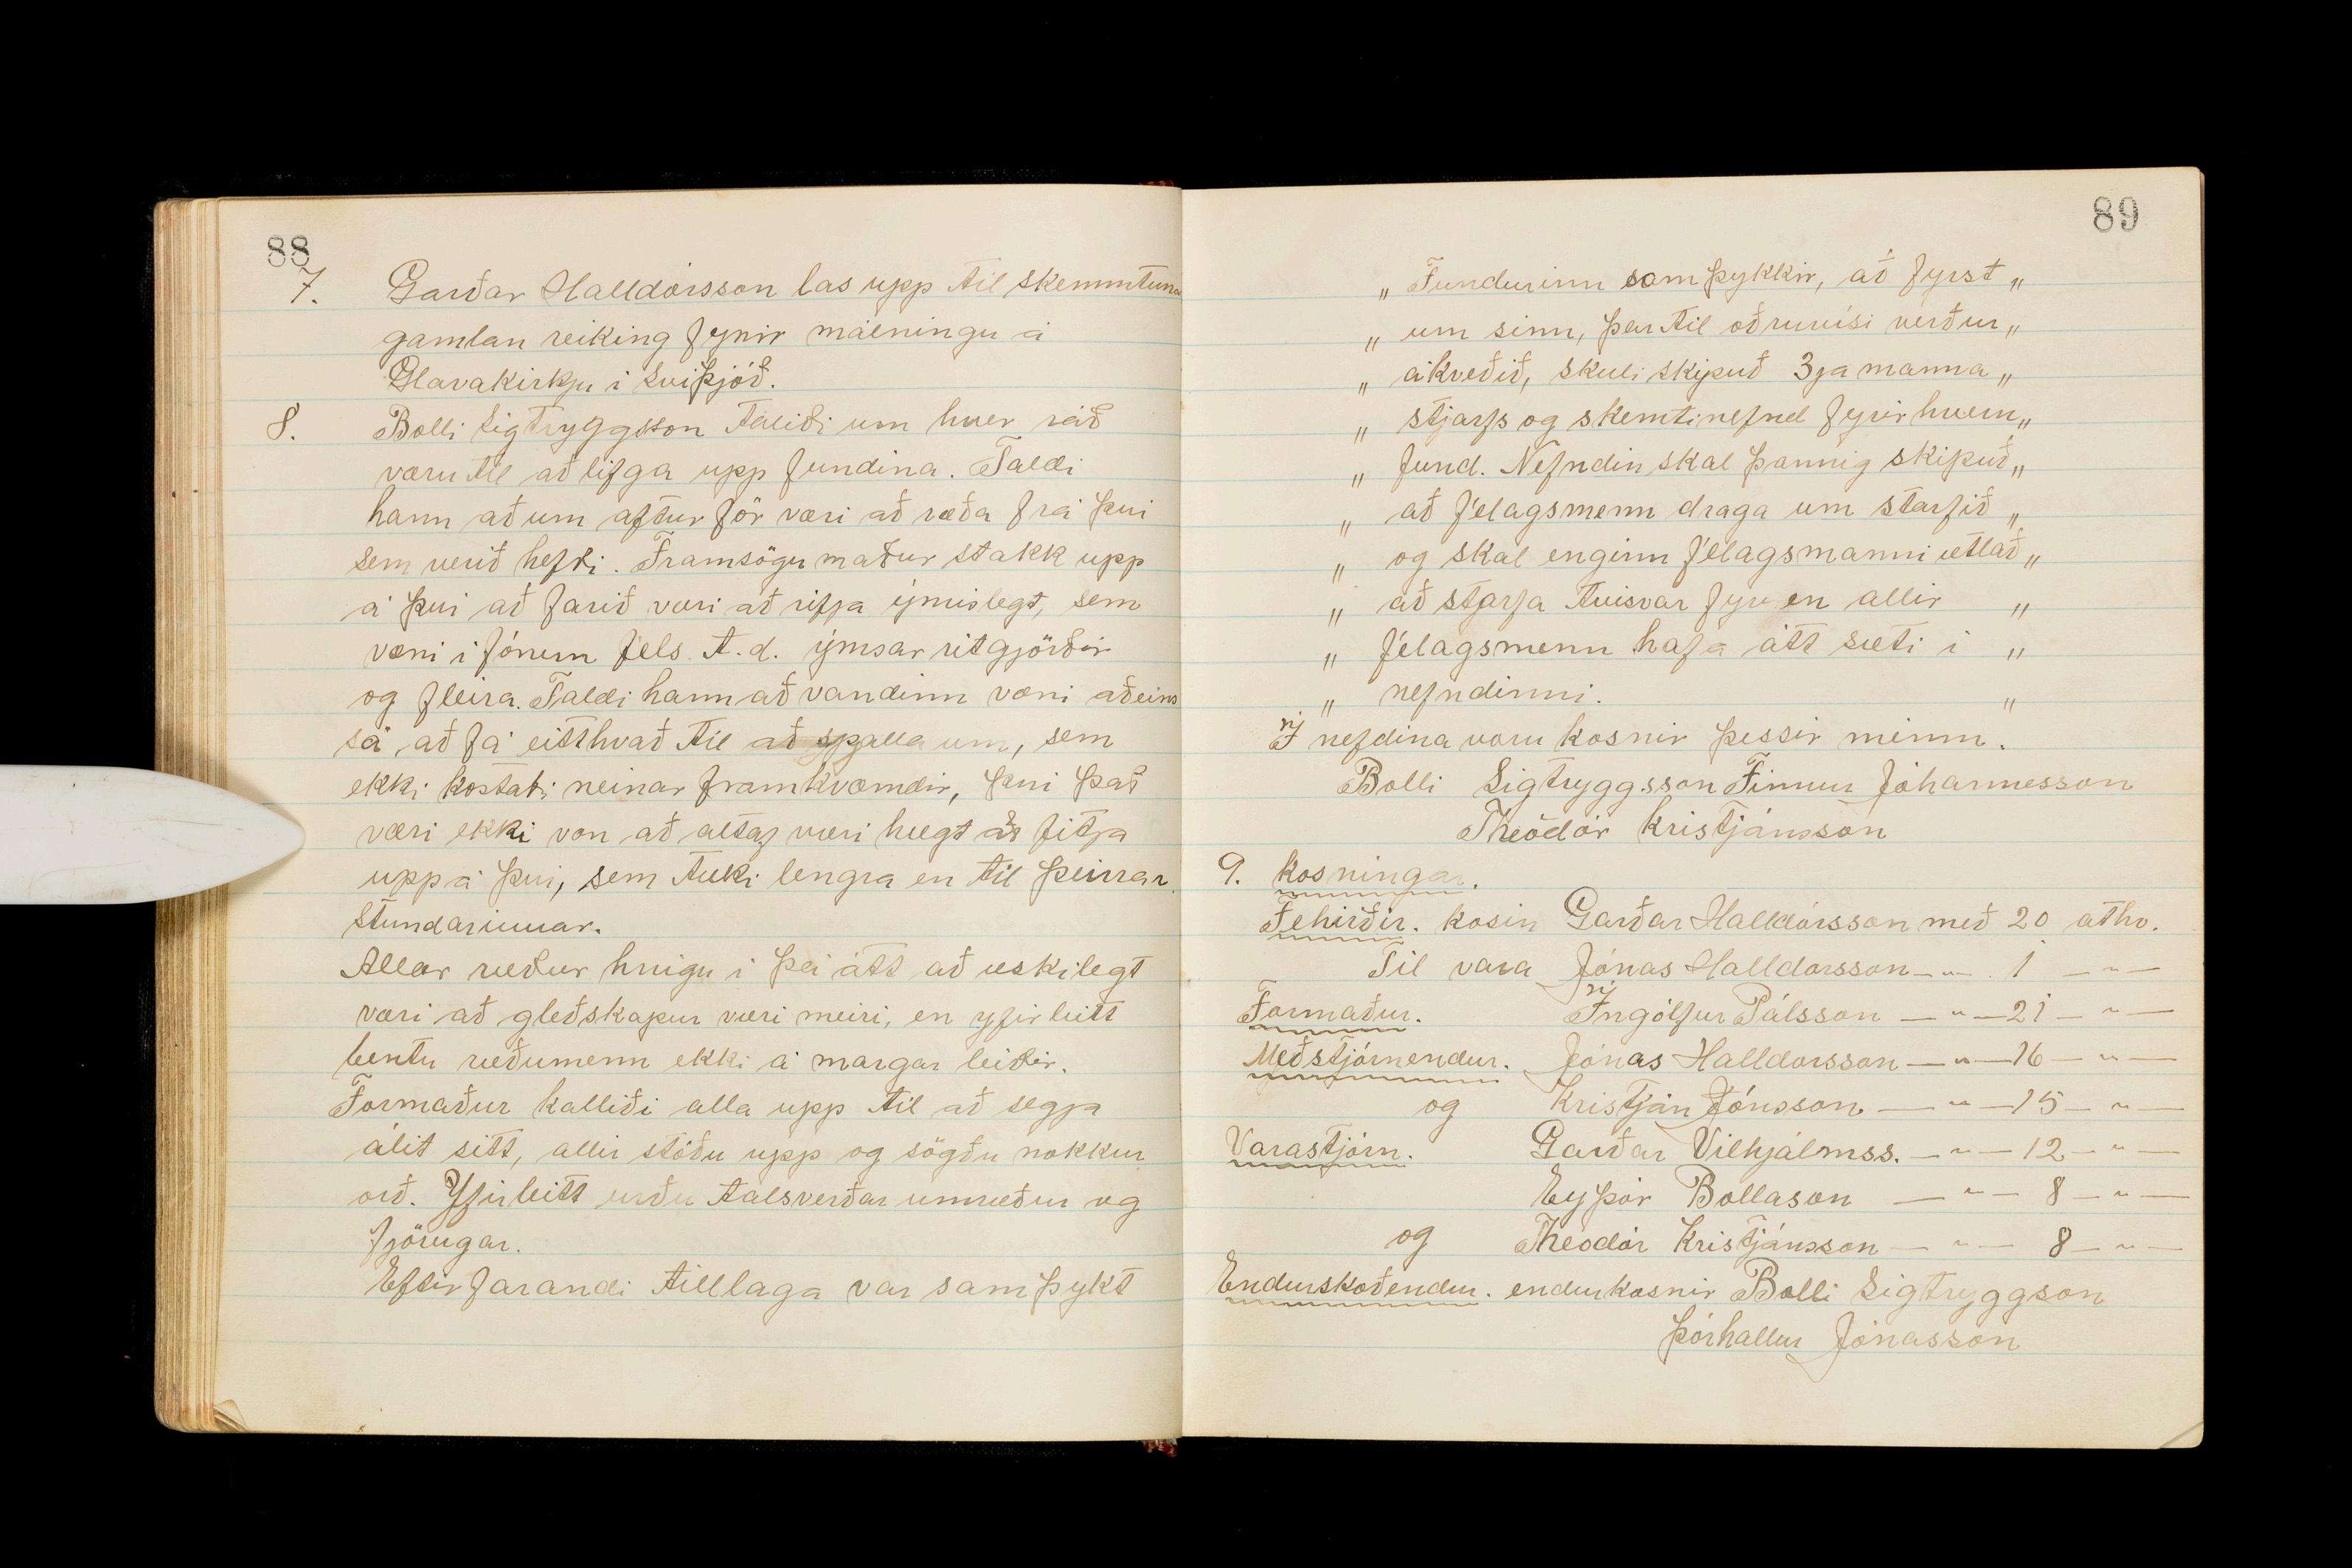 88
7. Garðar Halldórsson las upp til skemmtuna
gamlan reiking fyrir málningu á
Glavakirkju i Sviþjóð.
8. Bolli Sigtryggsson talaði um hver ráð
væru til að lifga upp fundina. Taldi
hann að um aftur för væri að ræða frá þvi
sem verið hefði. Framsögu maður stakk upp
á þvi að farið væri að rifja ýmislegt, sem
væri i fórum féls. t.d. ýmsar ritgjörðir
og fleira. Taldi hann að vandinn væri aðeins
sá að fá eitthvað til að spjalla um, sem
ekki kostaði neinar framkvæmdir, þvi það
væri ekki von að altaf væri hægt að fitja
upp á þvi, sem tæki lengra en til þeirrar
stundarinnar.
Allar ræður hnigu i þá átt að æskilegt
væri að gleðskapur væri meiri, en yfirleitt
bentu ræðumenn ekki á margar leiðir.
Formaður kallaði alla upp til að segja
álit sitt, allir stóðu upp og sögðu nokkur
orð. Yfirleitt urðu talsverðar umræður og
fjörugar.
Eftir farandi tillaga var samþykt
89
„ Fundurinn samþykkir, að fyrst „
„ um sinn, þar til oðruvísi verður „
„ ákveðið, skuli skipuð 3ja manna „
„ stjarfs og skemtinefnd fyrir hvern „
„ fund. Nefndin skal þannig skipuð „
„ að félagsmenn draga um starfið „
„ og skal enginn félagsmanni ætlað „
„ að starfa tvisvar fyr en allir „
„ félagsmenn hafa átt sæti i „
„ nefndinni. „
Í nefdina voru kosnir þessir menn.
Bolli Sigtryggsson Finnur Jóhannesson
Theódór Kristjánsson
9. Kosningar.
Féhirðir. kosin Garðar Halldórsson með 20 atkv.
Til vara Jónas Halldorsson — „ — 1 — „ —
Formaður. Ingólfur Pálsson — „ — 21 — „ —
Meðstjórnendur. Jónas Halldorsson — „ — 16 — „ —
og Kristján Jónsson — „ — 15 — „ —
Varastjórn. Garðar Vilhjálmss. — „ — 12 — „ —
Eyþór Bollason — „ — 8 — „ —
og Theodór Kristjánsson — „ — 8 — „ —
Endurskoðendur. endurkosnir Bolli Sigtryggson
Þórhallur Jónasson